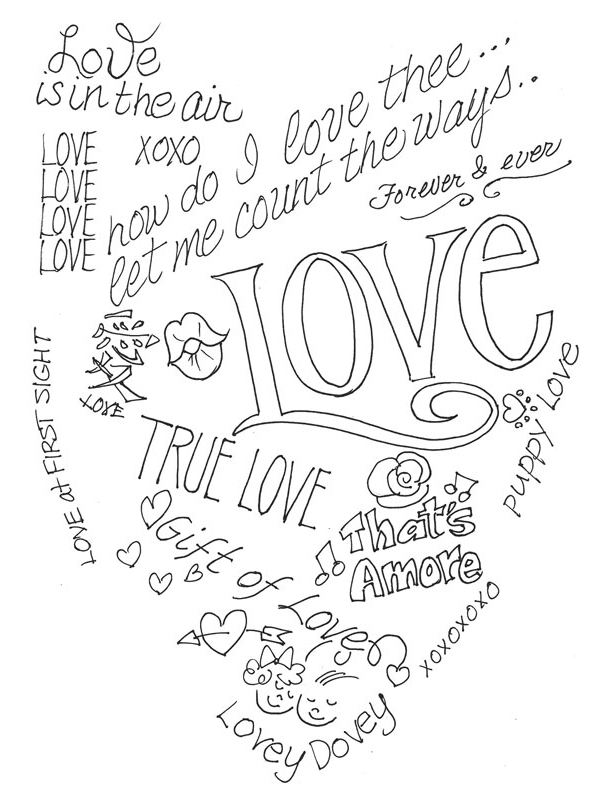 Love
is in the air
LOVE
LOVE
LOVE
LOVE
XOXO
how do I love thee...
let me count the ways..
Forever & ever
Love
LOVE at FIRST SIGHT
TRUE LOVE
puppy Love
That's
Amore
Gift of Love
xoxoxoxo
Lovey Dovey